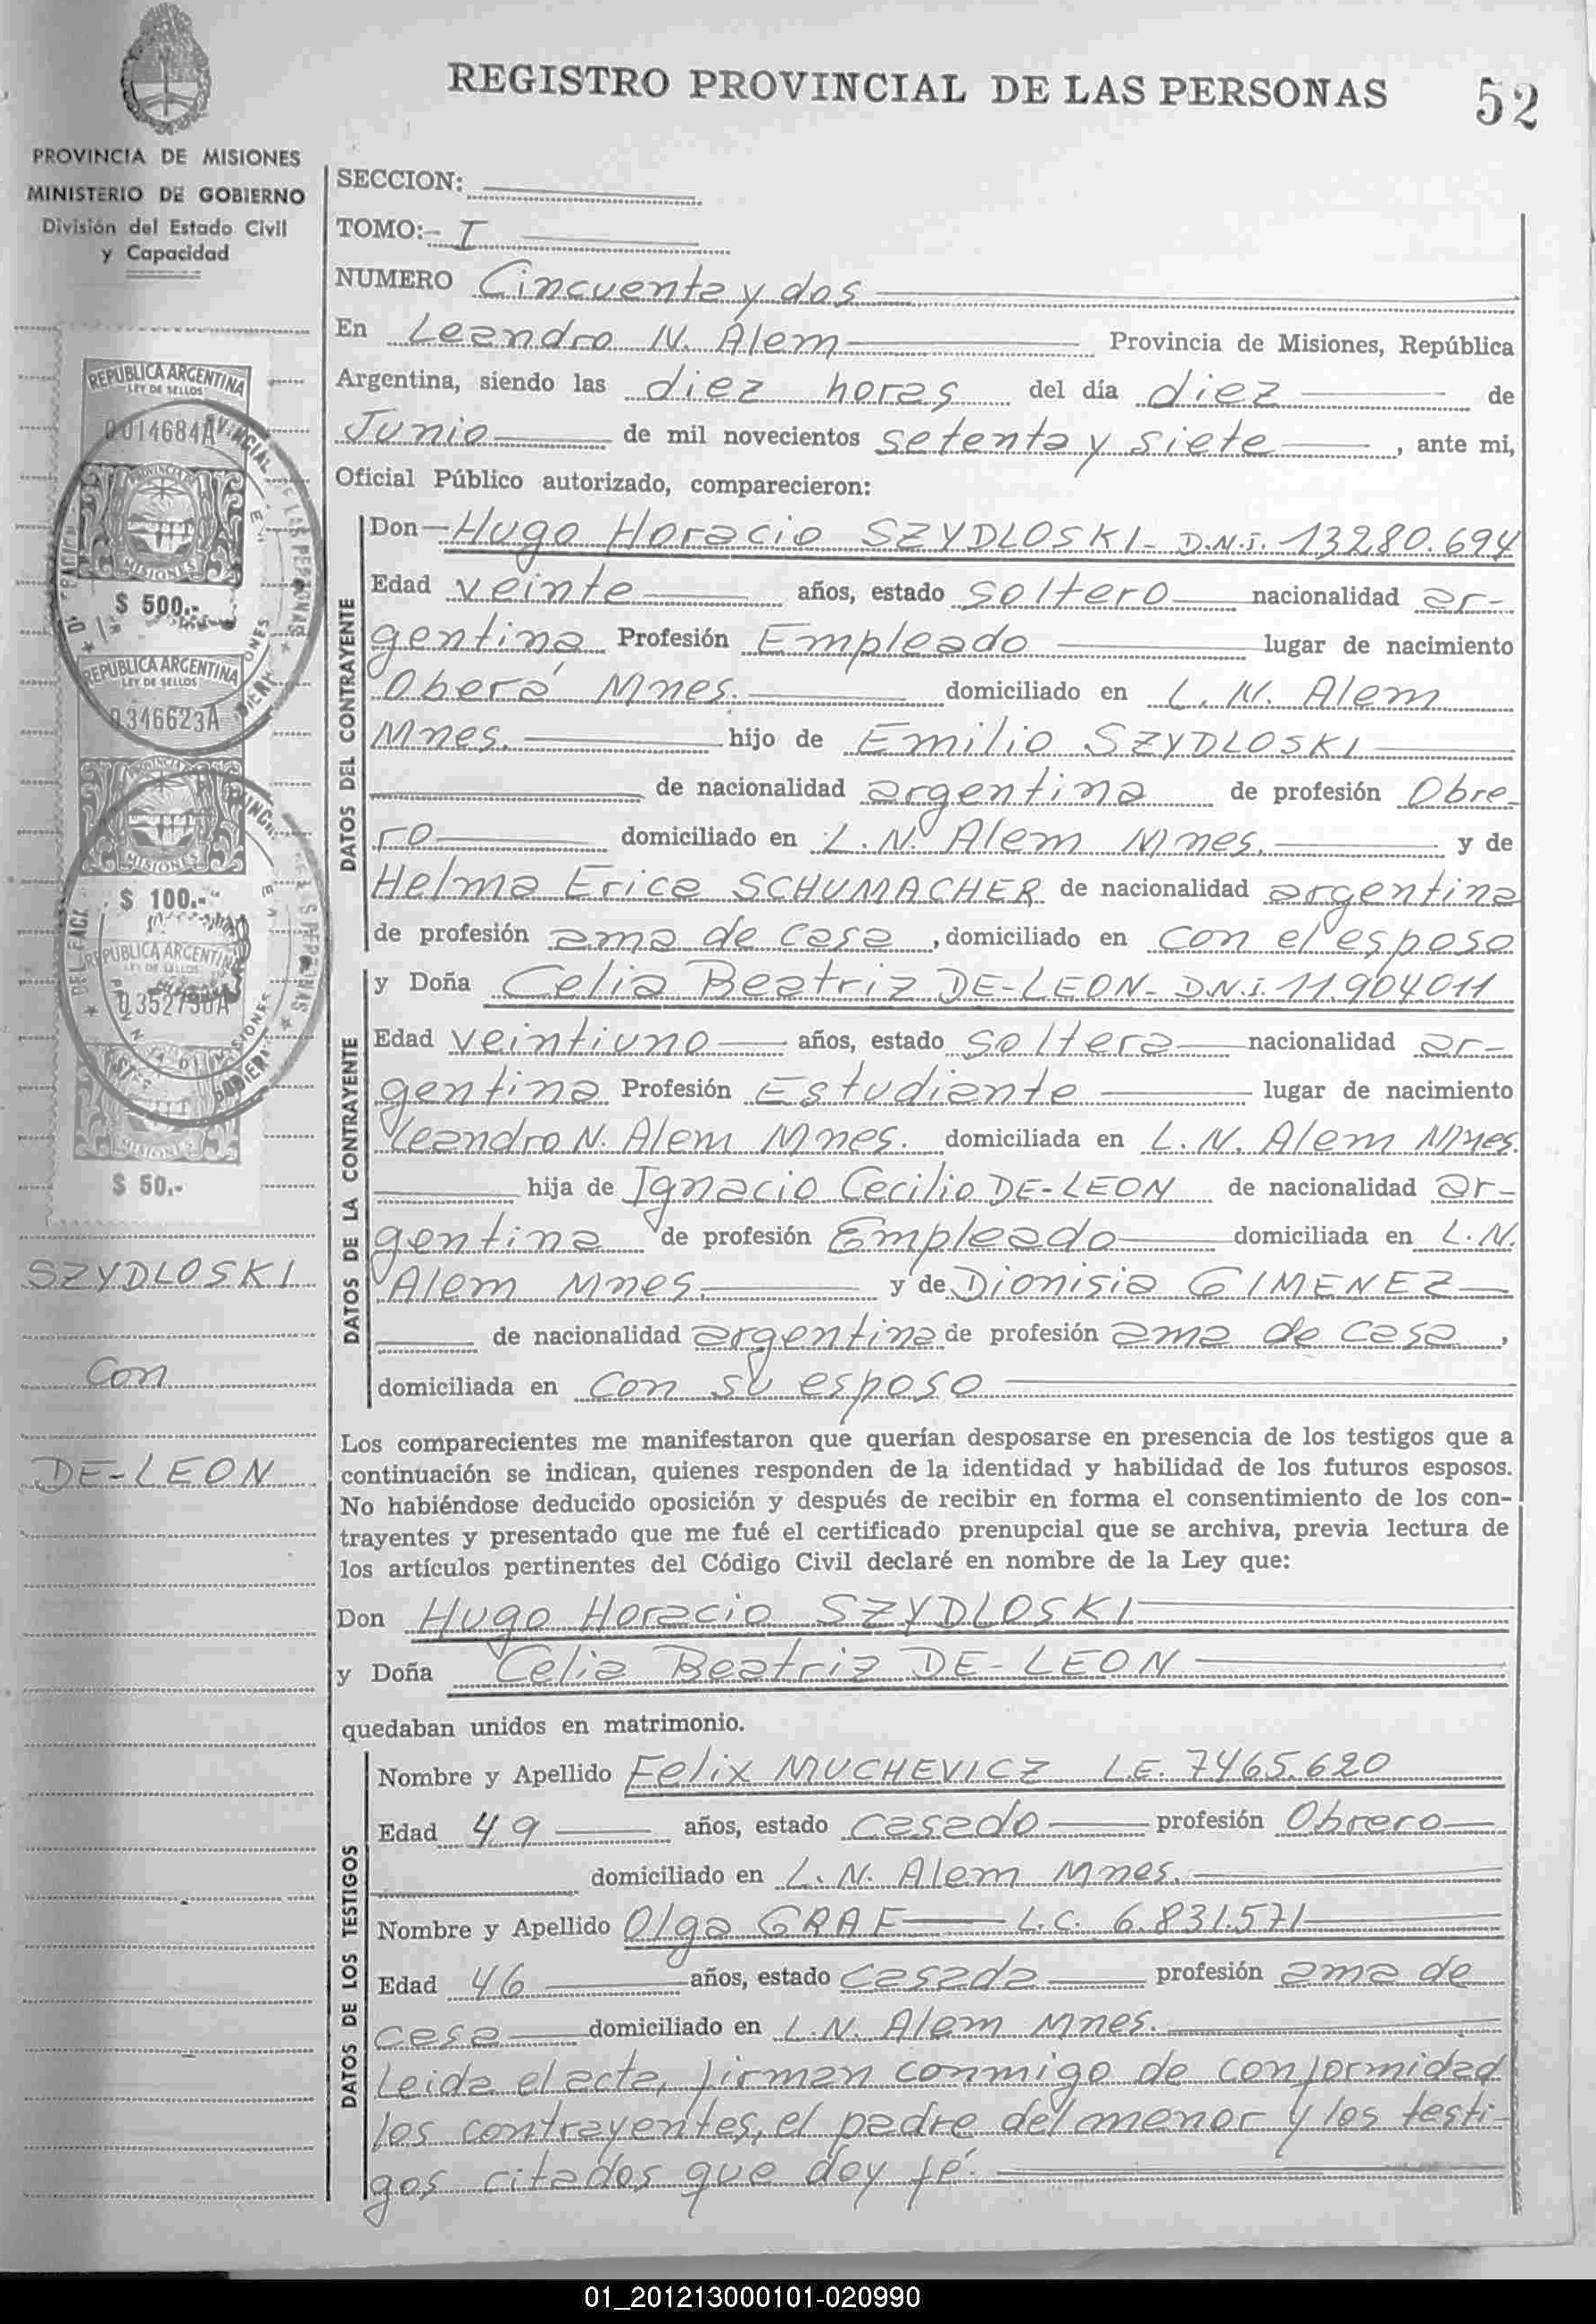 REGISTRO PROVINCIAL DE LAS PERSONAS 52
PROVINCIA DE MISIONES
MINISTERIO DE GOBIERNO
División del Estado Civil
y Capacidad
REPUBLICA ARGENTINA
LEY DE SELLOS
0014684A
MISIONES
$ 500.-
REPUBLICA ARGENTINA
LEY DE SELLOS
0346623A
MISIONES
$ 100.-
REPUBLICA ARGENTINA
LEY DE SELLOS
MISIONES
$ 50.-
SZYDLOSKI
Con
DE-LEON
SECCION:
TOMO:- I
NUMERO Cincuenta y dos
En Leandro N. Alem Provincia de Misiones, República
Argentina, siendo las diez horas del día diez de
Junio de mil novecientos setenta y siete, ante mi,
Oficial Público autorizado, comparecieron:
DATOS DEL CONTRAYENTE
Don Hugo Horacio SZYDLOSKI- D.N.I. 13280.694
Edad veinte años, estado soltero nacionalidad ar-
gentina Profesión Empleado lugar de nacimiento
Oberá Mnes. domiciliado en L. N. Alem
Mnes. hijo de Emilio SZYDLOSKI
de nacionalidad argentina de profesión Obre-
ro domiciliado en L. N. Alem Mnes. y de
Helma Erica SCHUMACHER de nacionalidad argentina
de profesión ama de casa, domiciliado en con el esposo
DATOS DE LA CONTRAYENTE
y Doña Celia Beatriz DE-LEON- D.N.I. 11.904011
Edad veintiuno años, estado soltera nacionalidad ar-
gentina Profesión Estudiante lugar de nacimiento
Leandro N. Alem Mnes. domiciliada en L. N. Alem Mnes.
hija de Ignacio Cecilio DE-LEON de nacionalidad ar-
gentina de profesión Empleado domiciliada en L. N.
Alem Mnes. y de Dionisia GIMENEZ
de nacionalidad argentina de profesión ama de casa,
domiciliada en con su esposo
Los comparecientes me manifestaron que querían desposarse en presencia de los testigos que a
continuación se indican, quienes responden de la identidad y habilidad de los futuros esposos.
No habiéndose deducido oposición y después de recibir en forma el consentimiento de los con-
trayentes y presentado que me fué el certificado prenupcial que se archiva, previa lectura de
los artículos pertinentes del Código Civil declaré en nombre de la Ley que:
Don Hugo Horacio SZYDLOSKI
y Doña Celia Beatriz DE-LEON
quedaban unidos en matrimonio.
DATOS DE LOS TESTIGOS
Nombre y Apellido Felix MUCHEVICZ L.E. 7465.620
Edad 49 años, estado casado profesión Obrero
domiciliado en L. N. Alem Mnes.
Nombre y Apellido Olga GRAF L.C. 6.831.571
Edad 46 años, estado casada profesión ama de
casa domiciliado en L. N. Alem Mnes.
Leida el acta, firman conmigo de conformidad
los contrayentes, el padre del menor y los testi-
gos citados que doy fé.
01_201213000101-020990